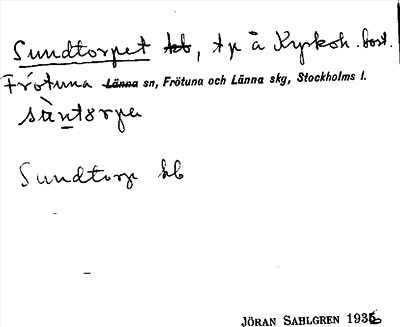 Sundtorpet kb, tp å Kyrkoh. bost.
Frötuna Länna sn, Frötuna och Länna skg, Stockholms l.
sùntɔrpa
Sundtorp kb
JÖRAN SAHLGREN 1936